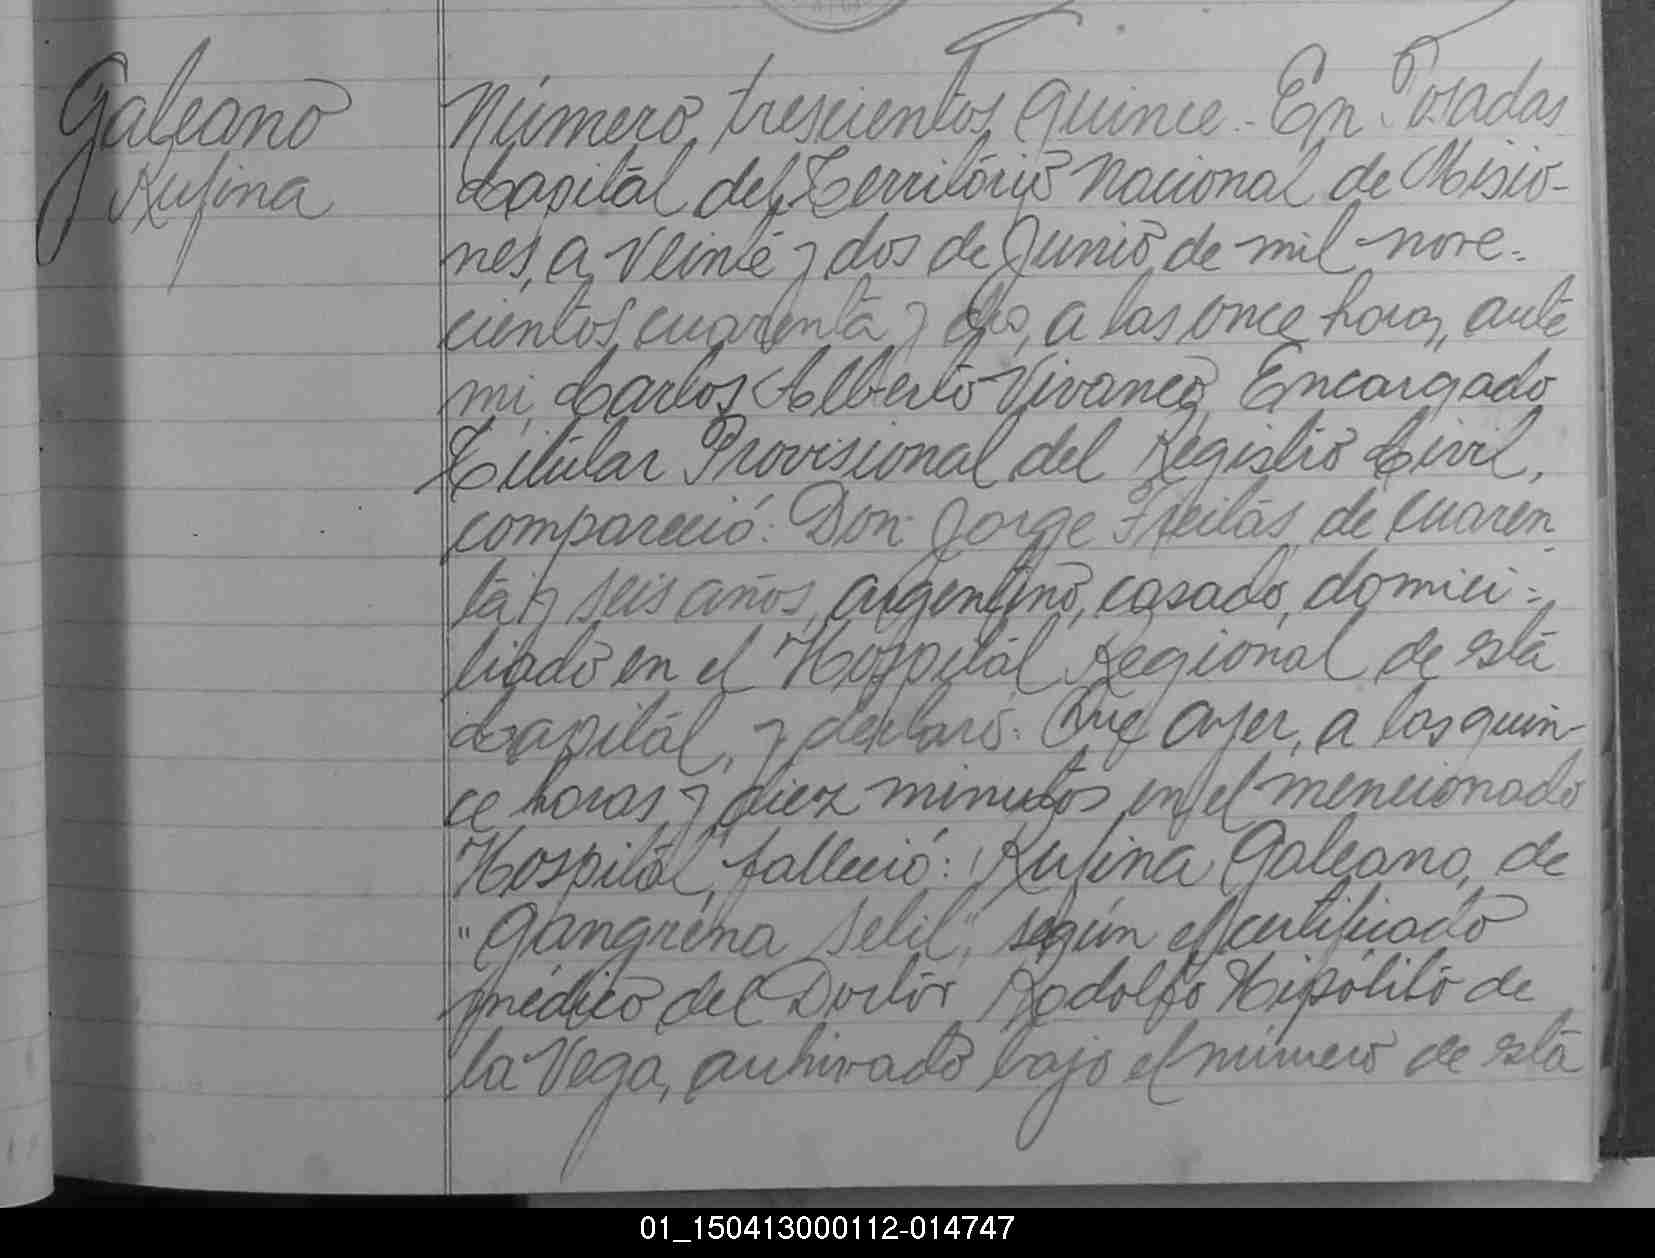 Galeano
Rufina
Número trescientos quince.- En Posadas
Capitál del Território Nacional de Misio-
nes, a veinte y dos de Junio de mil nove-
cientos cuarenta y dos, a las once horas, ante
mi, Carlos Alberto Vivanco, Encargado
Titular Provisional del Registro Civil,
compareció: Don Jorge Freitas, de cuaren
ta y seis años, argentino, casado, domici-
liado en el Hospital Regional de esta
Capitál, y declaró: Que ayer, a las quin-
ce horas y diez minutos en el mencionado
Hospital, falleció: Rufina Galeano, de
"Gangrena", según el certificado
médico del Doctor Rodolfo Hipólito de
la Vega, archivado bajo el número de esta
01_150413000112-014747